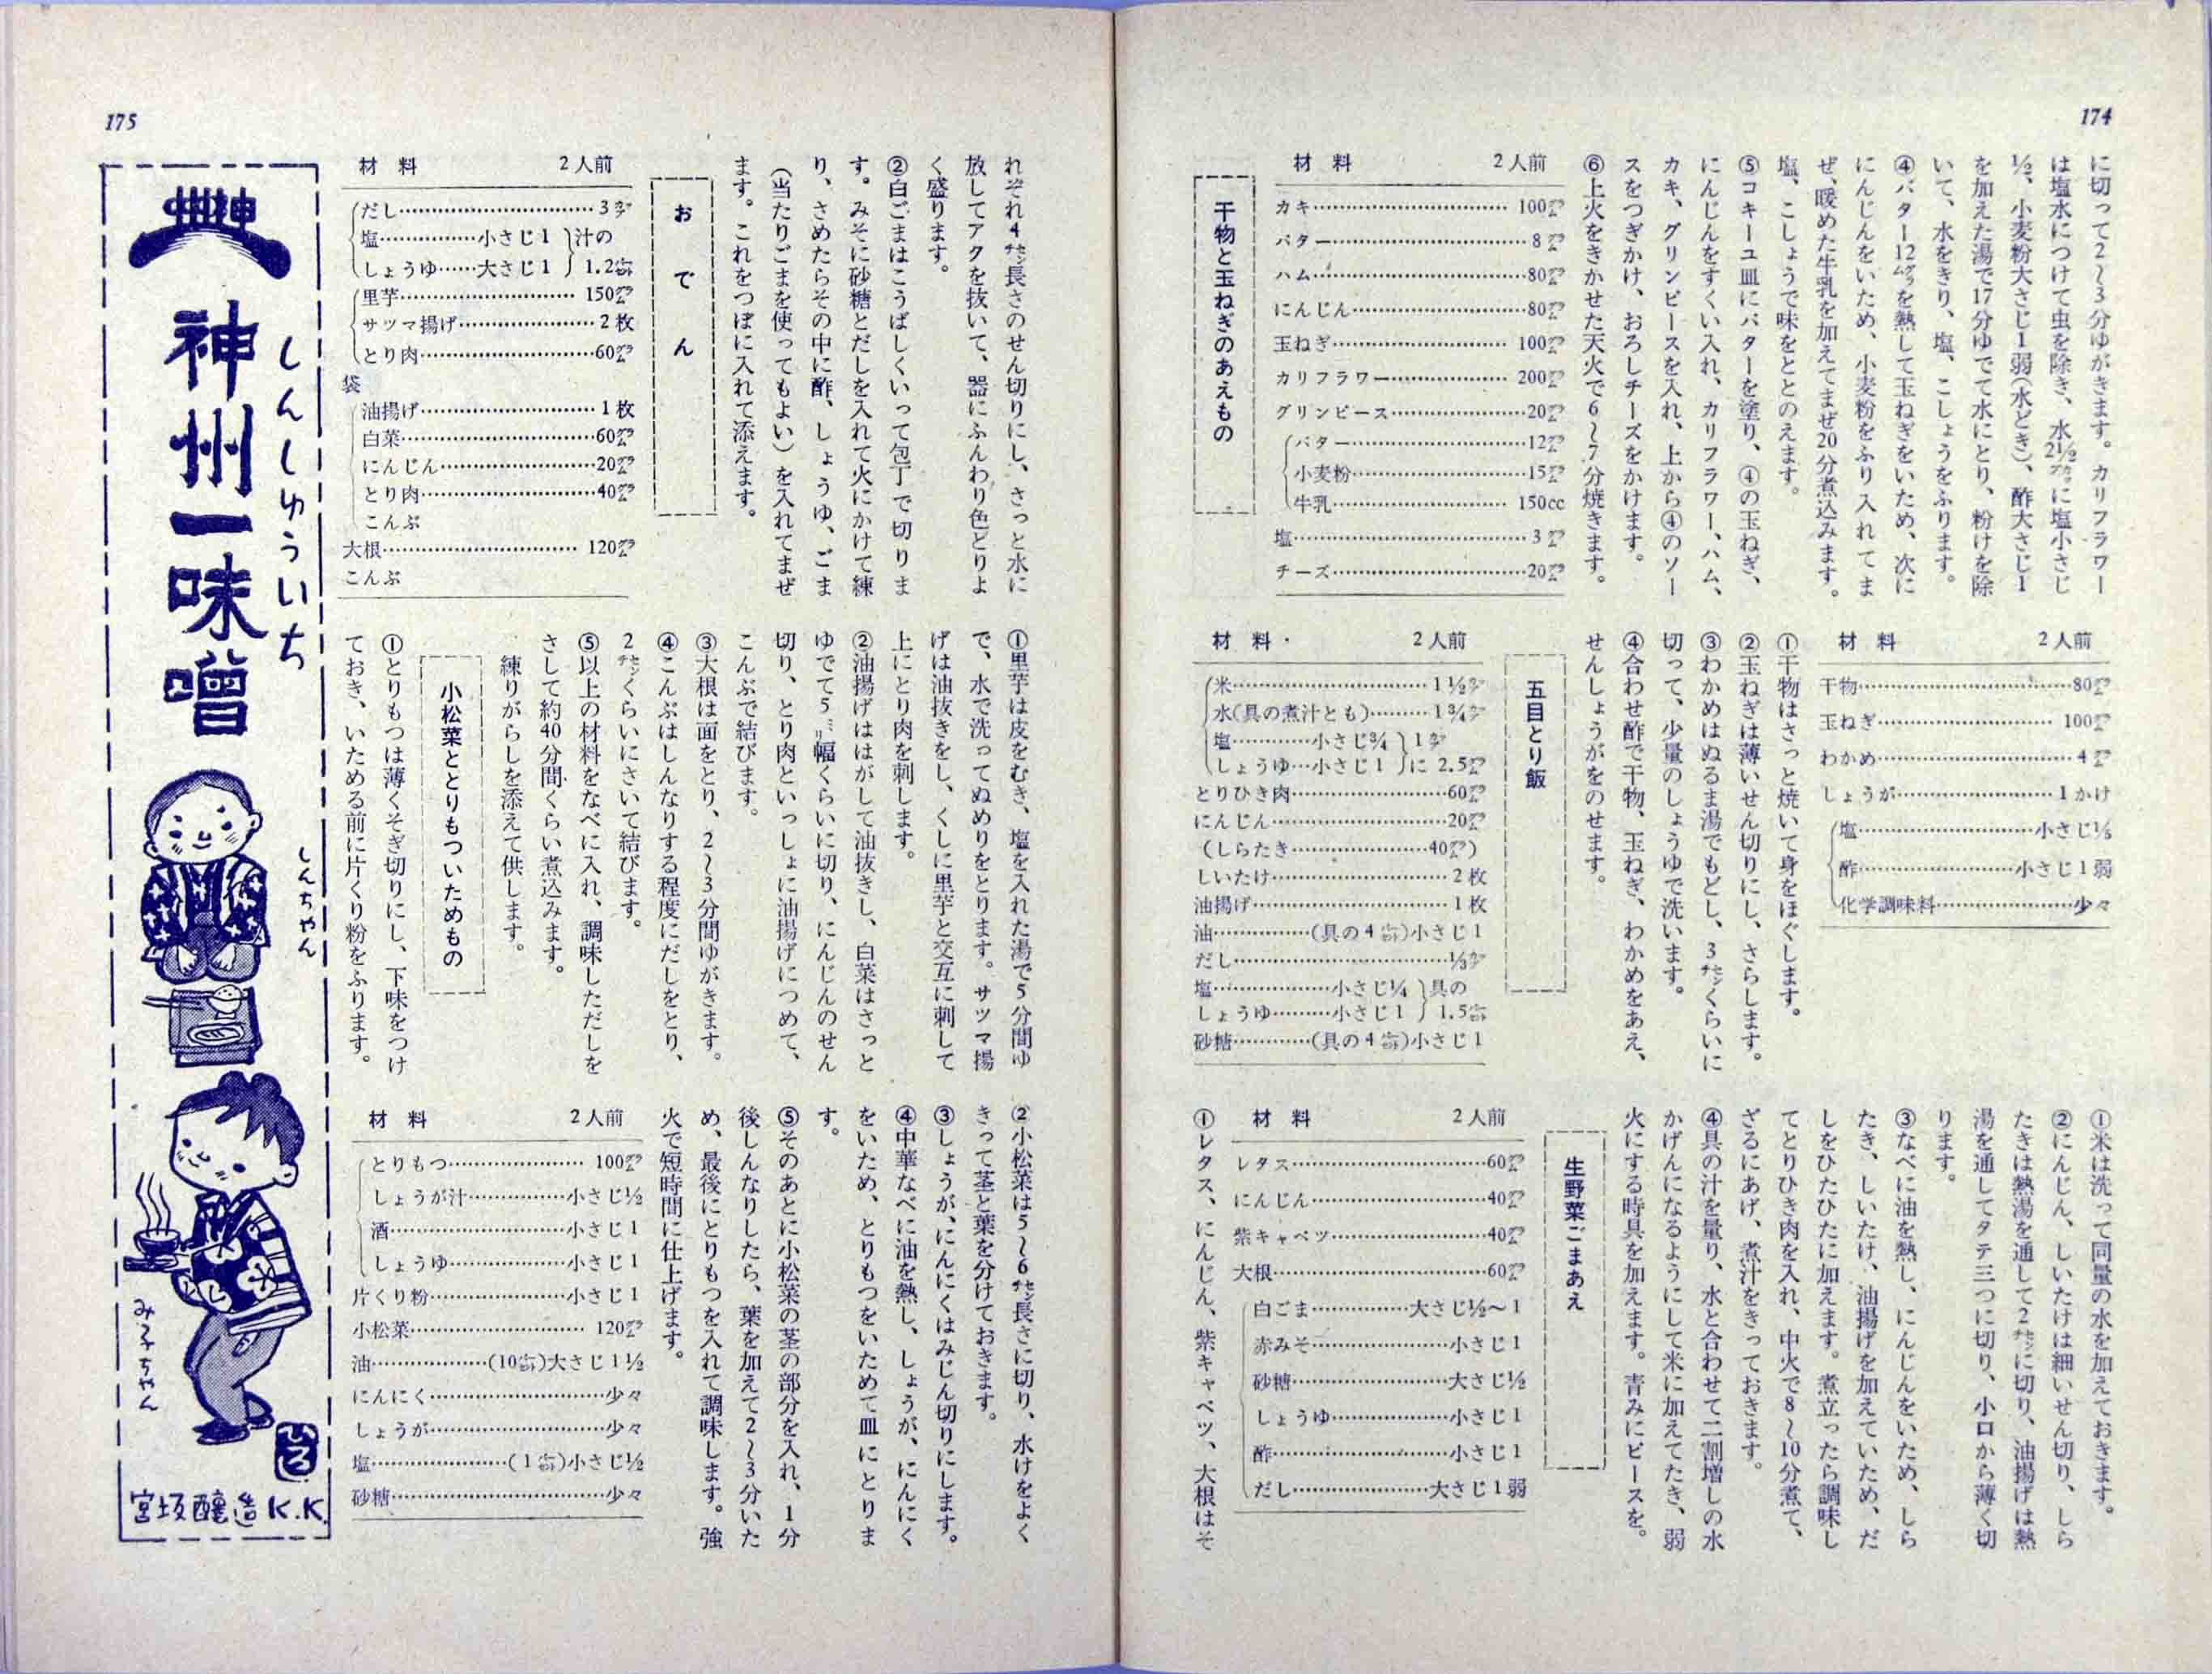 174
に切って2〜3分ゆがきます。カリフラワー
は塩水につけて虫を除き、水2½カップに塩小さじ
½、小麦粉大さじ1弱(水どき)、酢大さじ1
を加えた湯で17分ゆでて水にとり、粉けを除
いて、水をきり、塩、こしょうをふります。
④バター12グラムを熱して玉ねぎをいため、次に
にんじんをいため、小麦粉をふり入れてま
ぜ、暖めた牛乳を加えてまぜ20分煮込みます。
塩、こしょうで味をととのえます。
⑤コキーユ皿にバターを塗り、④の玉ねぎ、
にんじんをすくい入れ、カリフラワー、ハム、
カキ、グリンピースを入れ、上から④のソー
スをつぎかけ、おろしチーズをかけます。
⑥上火をきかせた天火で6〜7分焼きます。
材料 2人前
カキ……100グラム
バター……8グラム
ハム……80グラム
にんじん……80グラム
玉ねぎ……100グラム
カリフラワー……200グラム
グリンピース……20グラム
バター……12グラム
小麦粉……15グラム
牛乳……150cc
塩……3グラム
チーズ……20グラム
干物と玉ねぎのあえもの
材料 2人前
干物……80グラム
玉ねぎ……100グラム
わかめ……4グラム
しょうが……1かけ
塩……小さじ⅓
酢……小さじ1弱
化学調味料……少々
①干物はさっと焼いて身をほぐします。
②玉ねぎは薄いせん切りにし、さらします。
③わかめはぬるま湯でもどし、3センチくらいに
切って、少量のしょうゆで洗います。
④合わせ酢で干物、玉ねぎ、わかめをあえ、
せんしょうがをのせます。
五目とり飯
材料・ 2人前
米……1½カップ
水(具の煮汁とも)……1¾カップ
塩……小さじ¾ 1カップ
しょうゆ…小さじ1 に 2.5グラム
とりひき肉……60グラム
にんじん……20グラム
(しらたき……40グラム)
しいたけ……2枚
油揚げ……1枚
油……(具の4%)小さじ1
だし……⅓カップ
塩……小さじ¼ 具の
しょうゆ……小さじ1 1.5%
砂糖……(具の4%)小さじ1
①米は洗って同量の水を加えておきます。
②にんじん、しいたけは細いせん切り、しら
たきは熱湯を通して2センチに切り、油揚げは熱
湯を通してタテ三つに切り、小口から薄く切
ります。
③なべに油を熱し、にんじんをいため、しら
たき、しいたけ、油揚げを加えていため、だ
しをひたひたに加えます。煮立ったら調味し
てとりひき肉を入れ、中火で8〜10分煮て、
ざるにあげ、煮汁をきっておきます。
④具の汁を量り、水と合わせて二割増しの水
かげんになるようにして米に加えてたき、弱
火にする時具を加えます。青みにピースを。
生野菜ごまあえ
材料 2人前
レタス……60グラム
にんじん……40グラム
紫キャベツ……40グラム
大根……60グラム
白ごま……大さじ½〜1
赤みそ……小さじ1
砂糖……大さじ½
しょうゆ……小さじ1
酢……小さじ1
だし……大さじ1弱
①レタス、にんじん、紫キャベツ、大根はそ
175
れぞれ4センチ長さのせん切りにし、さっと水に
放してアクを抜いて、器にふんわり色どりよ
く盛ります。
②白ごまはこうばしくいって包丁で切りま
す。みそに砂糖とだしを入れて火にかけて練
り、さめたらその中に酢、しょうゆ、ごま
(当たりごまを使ってもよい)を入れてまぜ
ます。これをつぼに入れて添えます。
おでん
材料 2人前
だし……3カップ
塩……小さじ1 汁の
しょうゆ……大さじ1 1.2%
里芋……150グラム
サツマ揚げ……2枚
とり肉……60グラム
袋
油揚げ……1枚
白菜……60グラム
にんじん……20グラム
とり肉……40グラム
こんぶ
大根……120グラム
こんぶ
①里芋は皮をむき、塩を入れた湯で5分間ゆ
で、水で洗ってぬめりをとります。サツマ揚
げは油抜きをし、くしに里芋と交互に刺して
上にとり肉を刺します。
②油揚げははがして油抜きし、白菜はさっと
ゆでて5ミリ幅くらいに切り、にんじんのせん
切り、とり肉といっしょに油揚げにつめて、
こんぶで結びます。
③大根は面をとり、2〜3分間ゆがきます。
④こんぶはしんなりする程度にだしをとり、
2センチくらいにさいて結びます。
⑤以上の材料をなべに入れ、調味しただしを
さして約40分間くらい煮込みます。
練りがらしを添えて供します。
小松菜ととりもついためもの
①とりもつは薄くそぎ切りにし、下味をつけ
ておき、いためる前に片くり粉をふります。
②小松菜は5〜6センチ長さに切り、水けをよく
きって茎と葉を分けておきます。
③しょうが、にんにくはみじん切りにします。
④中華なべに油を熱し、しょうが、にんにく
をいため、とりもつをいためて皿にとりま
す。
⑤そのあとに小松菜の茎の部分を入れ、1分
後しんなりしたら、葉を加えて2〜3分いた
め、最後にとりもつを入れて調味します。強
火で短時間に仕上げます。
材料 2人前
とりもつ……100グラム
しょうが汁……小さじ½
酒……小さじ1
しょうゆ……小さじ1
片くり粉……小さじ1
小松菜……120グラム
油……(10%)大さじ1½
にんにく……少々
しょうが……少々
塩……(1%)小さじ½
砂糖……少々
しんしゅういち
神州一味噌
しんちゃん
みこちゃん
ひろし
宮坂醸造K.K.